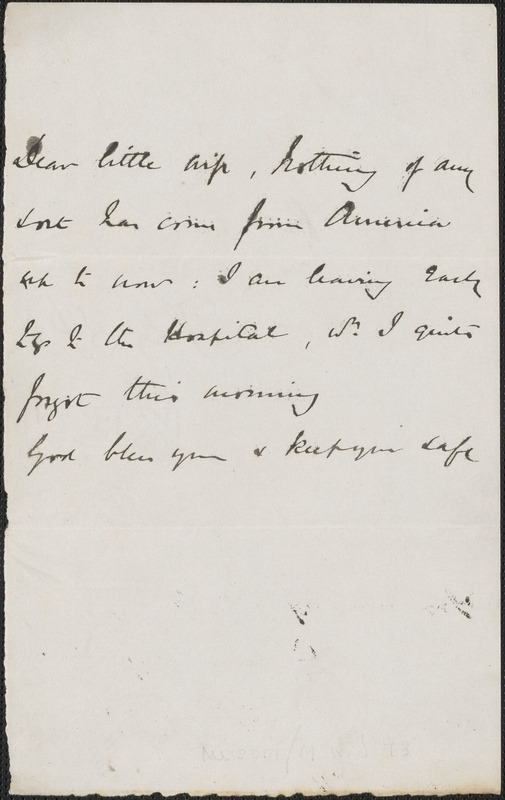 Dear little wife, Nothing of any
sort has come from America
up to now: I am leaving early
to go to the Hospital, wh. I quite
forgot this morning
God bless you & keep you safe